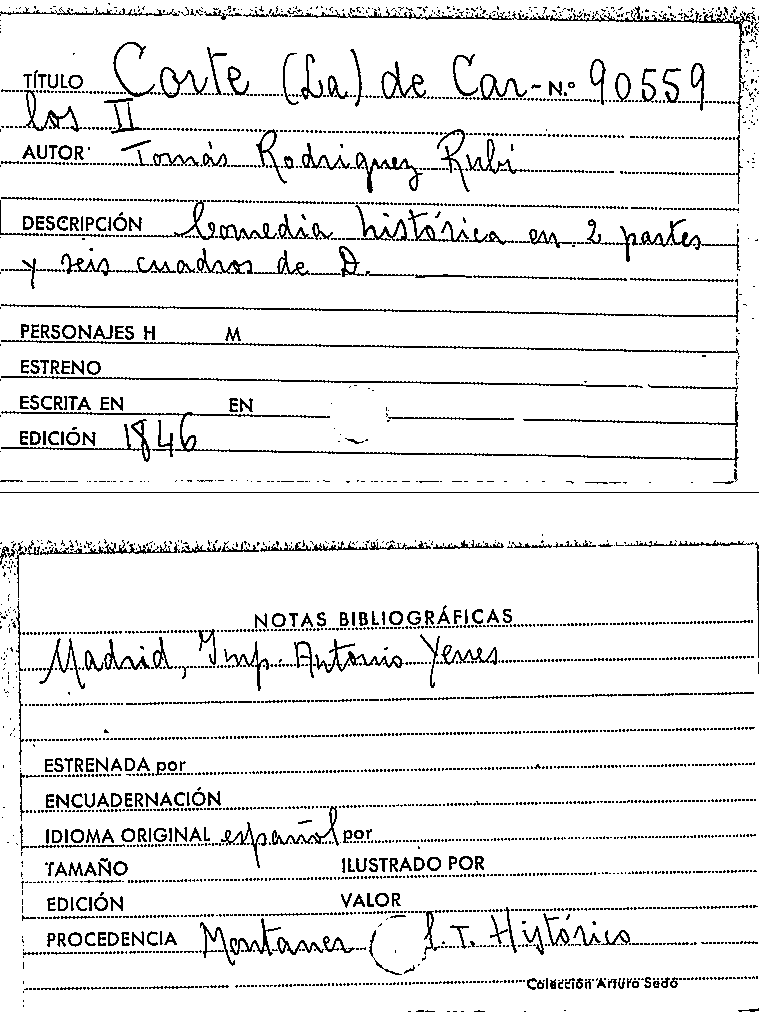 TÍTULO Corte (La) de Car- N.º 90559
los II
AUTOR Tomás Rodriguez Rubí
DESCRIPCIÓN Comedia histórica en 2 partes
y seis cuadros de D.
PERSONAJES H M
ESTRENO
ESCRITA EN EN
EDICIÓN 1846
NOTAS BIBLIOGRÁFICAS
Madrid, Imp. Antonio Yenes
ESTRENADA por
ENCUADERNACIÓN
IDIOMA ORIGINAL español por
TAMAÑO ILUSTRADO POR
EDICIÓN VALOR
PROCEDENCIA Montaner S.T. Histórico
Colección Arturo Sedó